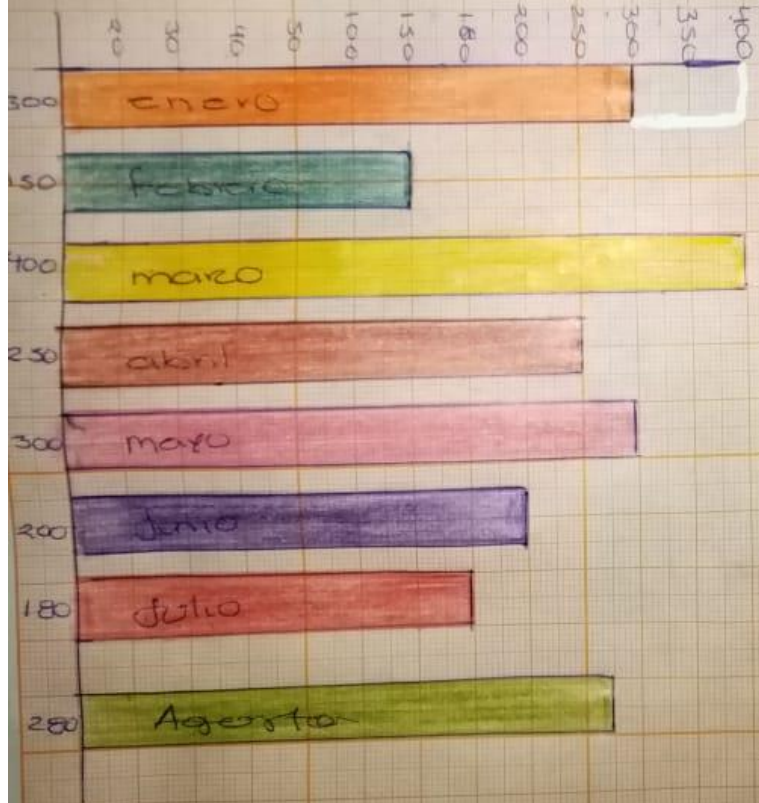 20 30 40 50 100 150 180 200 250 300 350 400
300 enero
150 febrero
400 marzo
250 abril
300 mayo
200 Junio
180 Julio
280 Agosto